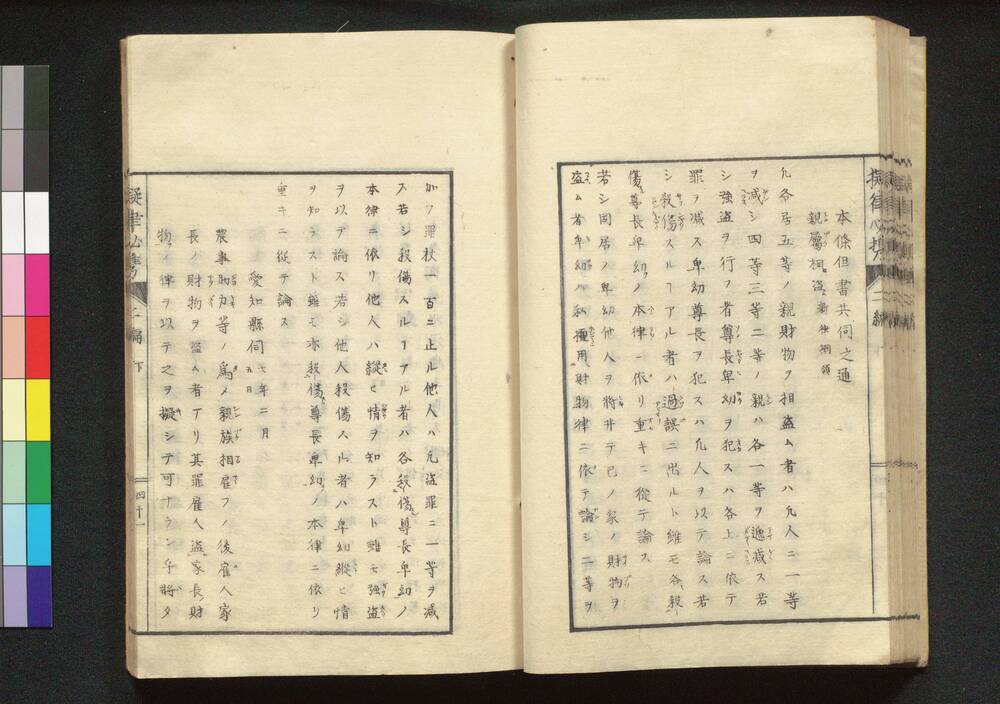 本條但書共伺之通
親屬相盜 新律綱領
凡各居五等ノ親財物ヲ相盜ム者ハ凡人ニ一等
ヲ减シ四等三等二等ノ親ハ各一等ヲ遞减ス若
シ強盜ヲ行フ者尊長卑幼ヲ犯スハ各上ニ依テ
罪ヲ减ス卑幼尊長ヲ犯スハ凡人ヲ以テ論ス若
シ殺傷スルヿアル者ハ過誤ニ出ルト雖モ各殺
傷尊長卑幼ノ本律ニ依リ重キニ從テ論ス
若シ同居ノ卑幼他人ヲ將井テ己ノ家ノ財物ヲ
盜ム者卑幼ハ私擅用財物律ニ依テ論シ二等ヲ
加フ罪杖一百ニ止ル他人ハ凡盜罪ニ一等ヲ减
ス若シ殺傷スルヿアル者ハ各殺傷尊長卑幼ノ
本律ニ依リ他人ハ縱ヒ情ヲ知ラスト雖モ強盜
ヲ以テ論ス若シ他人殺傷スル者ハ卑幼縱ヒ情
ヲ知ラスト雖モ亦殺傷尊長卑幼ノ本律ニ依リ
重キニ從テ論ス
愛知縣伺 七年二月五日
農事助力等ノ爲メ親族相雇フノ後雇人家
長ノ財物ヲ盜ム者アリ其罪雇人盜家長財
物ノ律ヲ以テ之ヲ擬シテ可ナランヤ將タ
擬律必携 二編 下
四十一